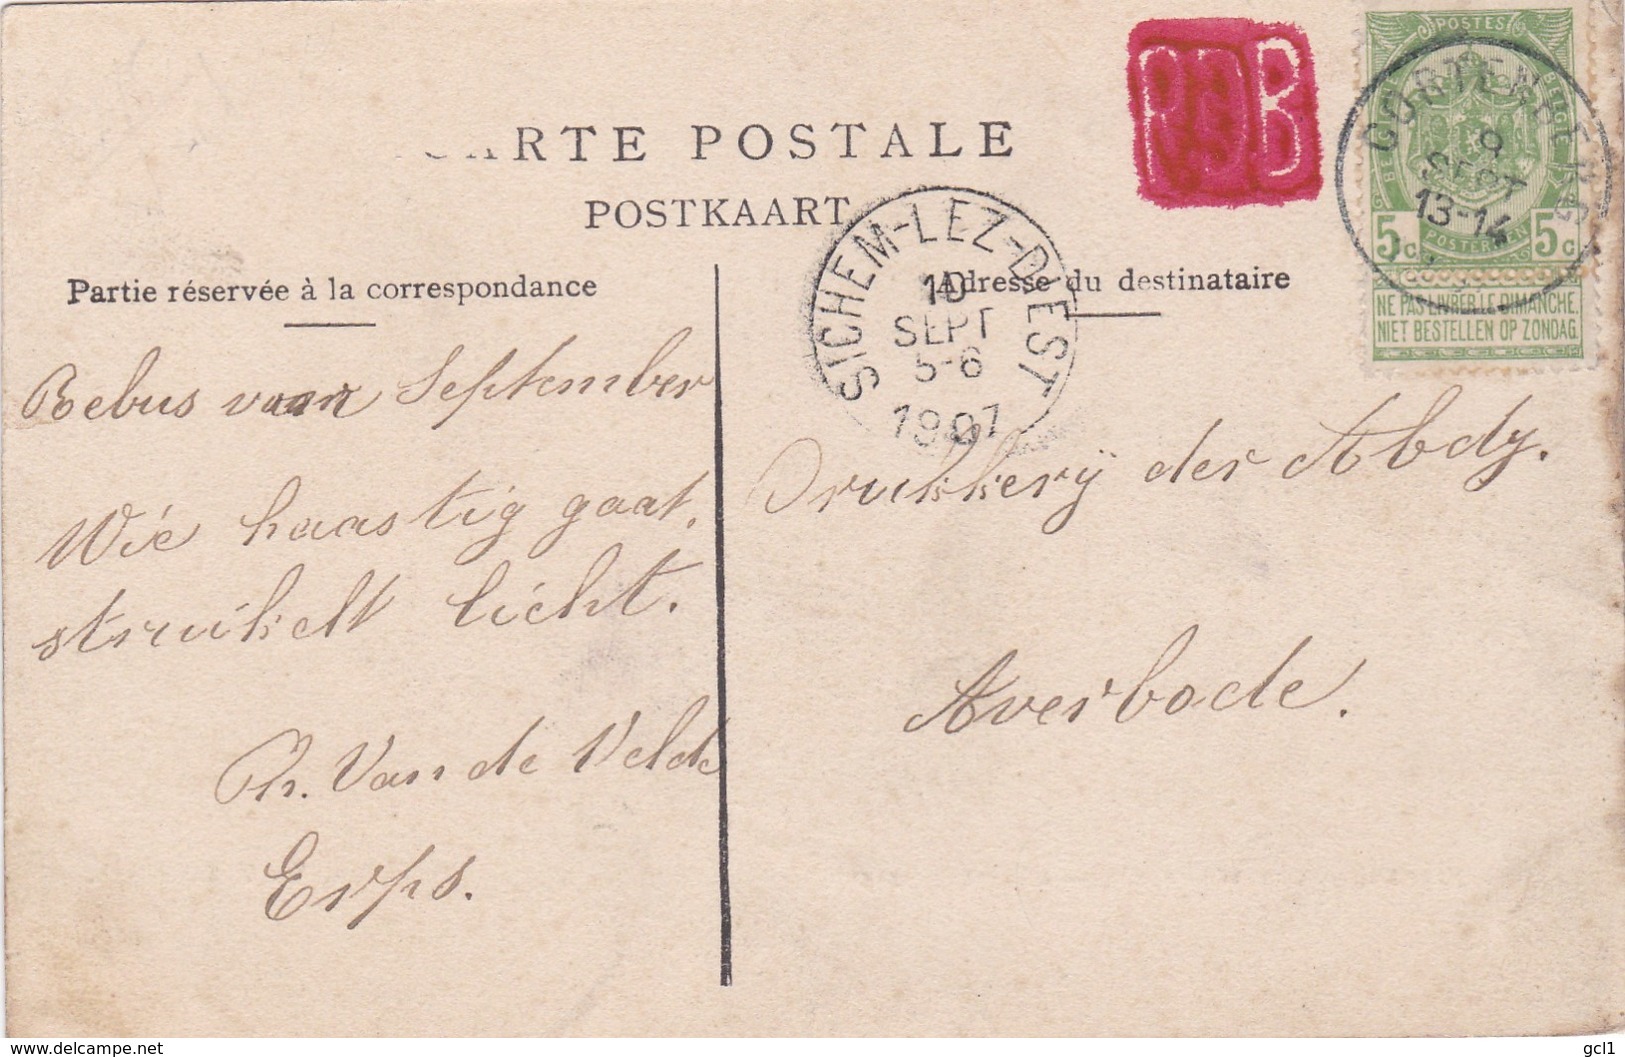 CARTE POSTALE
POSTKAART
Partie réservée à la correspondance
Adresse du destinataire
Rebus van September
Wie haastig gaat,
struikelt licht.
Ph. Van de Velde
Erps.
Drukkerÿ der Abdÿ.
Averbode.
SICHEM-LEZ-DIEST
10
SEPT
5-6
1907
CORTENBERG
9
SEPT
13-14
POSTES
BELGE
POSTERIJEN
5c 5c
NE PAS LIVRER LE DIMANCHE.
NIET BESTELLEN OP ZONDAG.
www.delcampe.net
gcl1